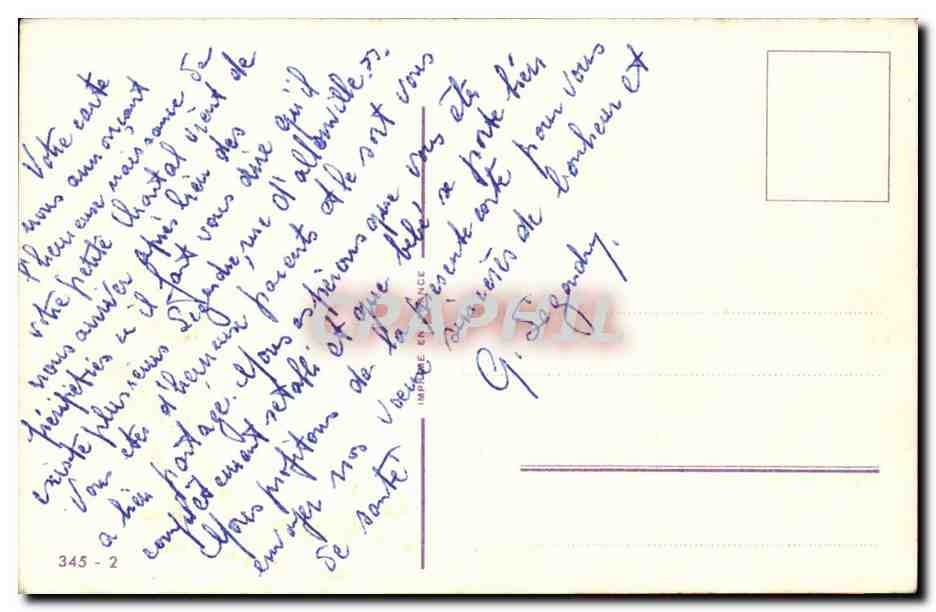 Votre carte
nous annonçant
l'heureuse naissance de
votre petite Chantal vient de
nous arriver après bien des
péripéties vu il faut vous dire qu'il
existe plusieurs Légendre, rue d'
Vous êtes d'heureux parents et le sort vous
a bien partagé. Nous espérons que vous êtes
complètement rétabli et que bébé se porte bien
Nous profitons de la présente carte pour vous
envoyer nos voeux sincères de bonheur et
de santé
G. Légendre.
IMPRIMÉ EN FRANCE
345 - 2
CPAPHIL